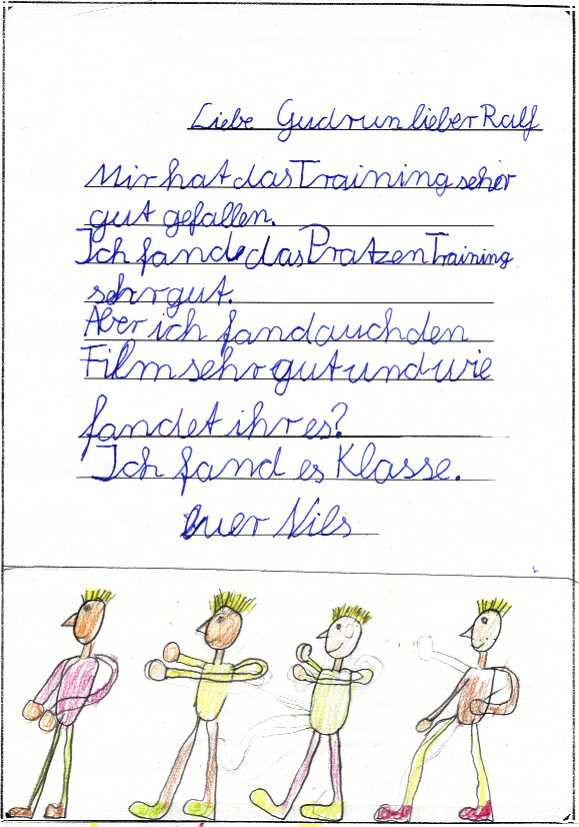 Liebe Gudrun lieber Ralf
Mir hat das Training sehr
gut gefallen.
Ich fand das Pratzen Training
sehr gut.
Aber ich fand auch den
Film sehr gut und wie
fandet ihr es?
Ich fand es Klasse.
euer Nils